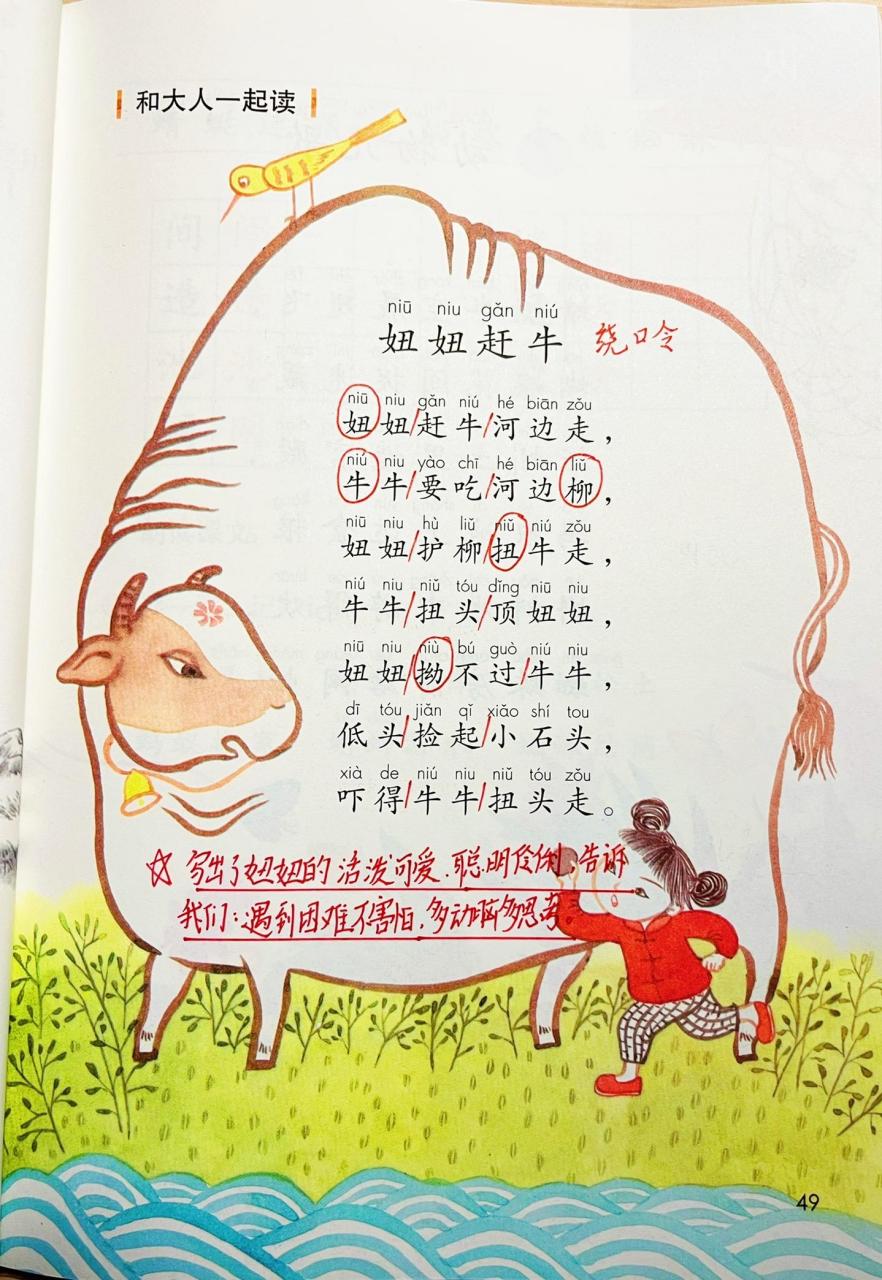 和大人一起读
niū niu gǎn niú
妞妞赶牛 绕口令
niū niu gǎn niú hé biān zǒu
妞妞/赶牛/河边走，
niú niu yào chī hé biān liǔ
牛牛/要吃/河边柳，
niū niu hù liǔ niǔ niú zǒu
妞妞/护柳/扭牛走，
niú niu niǔ tóu dǐng niū niu
牛牛/扭头/顶妞妞，
niū niu niù bú guò niú niu
妞妞/拗不过/牛牛，
dī tóu jiǎn qǐ xiǎo shí tou
低头/捡起/小石头，
xià de niú niu niǔ tóu zǒu
吓得/牛牛/扭头走。
☆ 写出了妞妞的活泼可爱、聪明伶俐，告诉
我们：遇到困难不害怕，多动脑多思考。
49